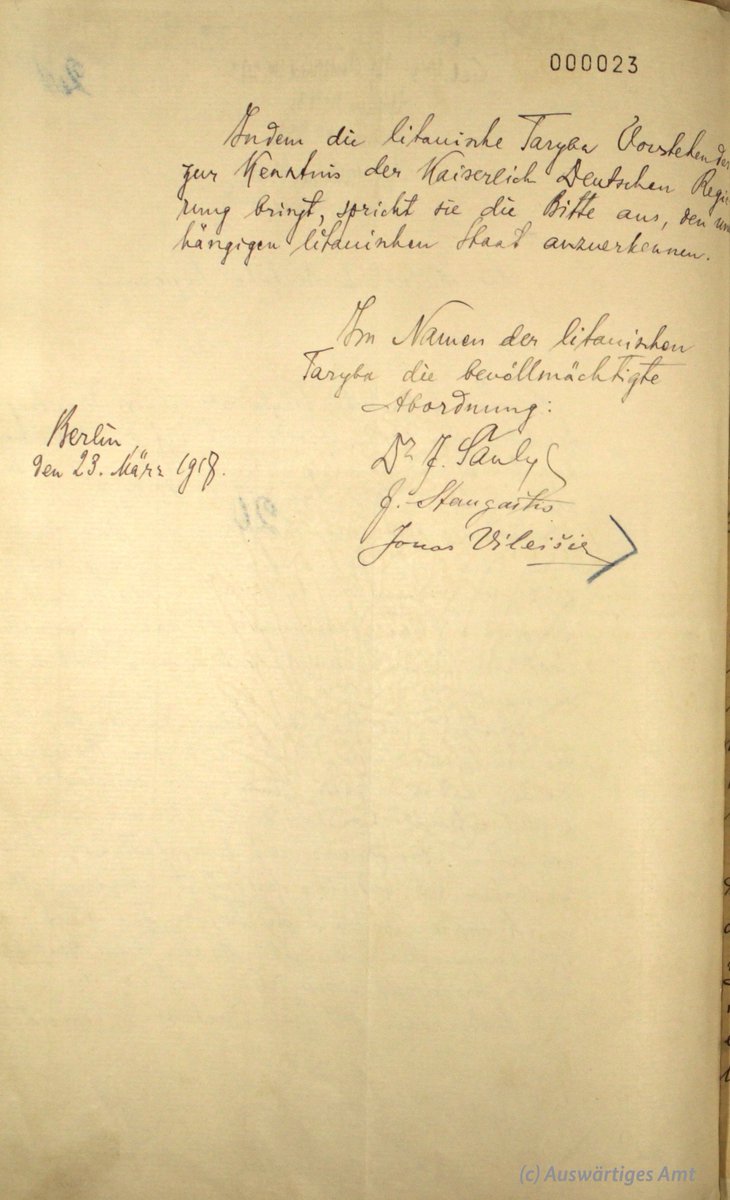 000023
Indem die litauische Taryba Vorstehendes
zur Kenntnis der Kaiserlich Deutschen Regie
rung bringt, spricht sie die Bitte aus, den unab
hängigen litauischen Staat anzuerkennen.
Im Namen der litauischen
Taryba die bevöllmächtigte
Abordnung:
Berlin,
den 23. März 1918.
Dr J. Šaulys
J. Staugaitis
Jonas Vileišis
(c) Auswärtiges Amt